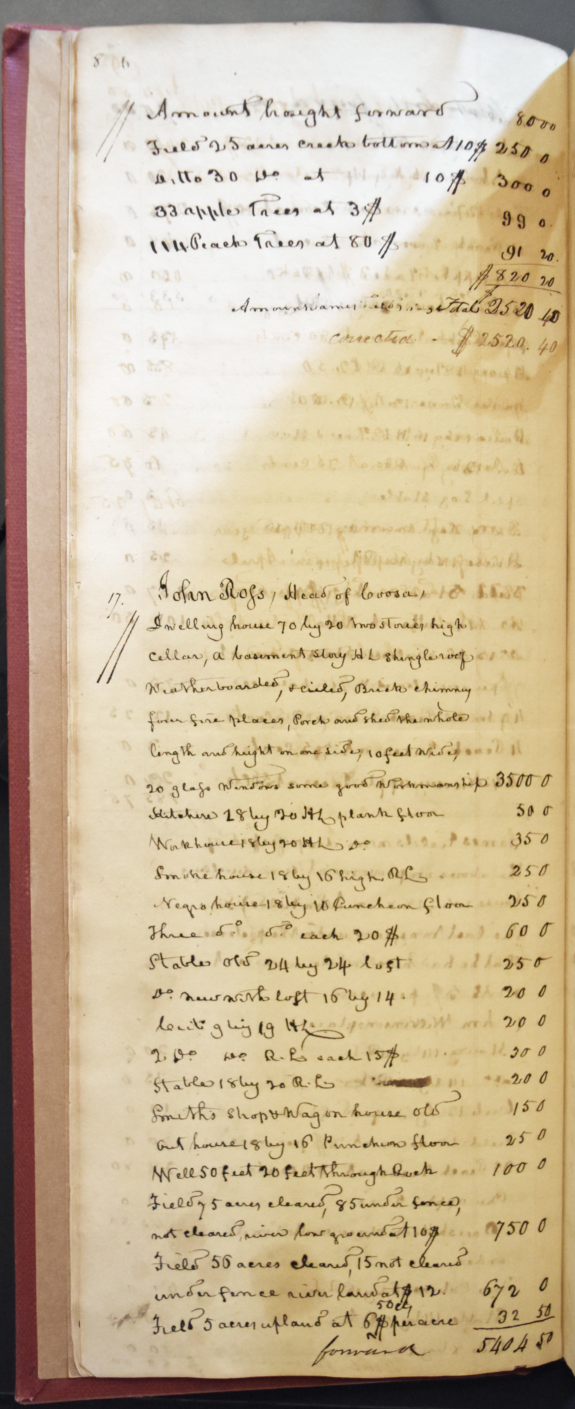 Amount brought forward 800 0
Field 25 acres creek bottom at 10$ 250 0
Ditto 30 Do at 10$ 300 0
33 apple Trees at 3$ 99 0
114 Peach Trees at 80 $ 91 20.
$ 820 20
Total $ 2520 40
corrected - $ 2520. 40
17. John Ross, Head of Coosa,
Dwelling house 70 by 20 two stories high
cellar, a basement story HL shingle roof
weatherboarded, & cieled, Brick chimney
four fire places, Porch and shed the whole
length and height on one side, 10 feet wide,
20 glass windows some good workmanship 3500 0
Kitchen 28 by 20 HL plank floor 50 0
Workhouse 18 by 20 HL Do 35 0
Smoke house 18 by 16 high RL 25 0
Negro house 18 by 16 Puncheon floor 25 0
Three do do each 20 $ 60 0
Stable old 24 by 24 loft 25 0
Do new with loft 16 by 14. 20 0
by 19 HL 20 0
2 Do Do R.L each 15$ 30 0
Stable 18 by 20 R.L 20 0
Smiths shop & Wagon house old 15 0
Out house 18 by 16 Puncheon floor 25 0
Well 50 feet 20 feet through Rock 100 0
Field 75 acres cleared, 85 under fence,
not cleared, river low ground at 10$ 750 0
Field 56 acres cleared, 15 not cleared
under fence river land at $ 12. 672 0
Field 5 acres upland at 6$ 50cts per acre 32 50
forward 5404 50